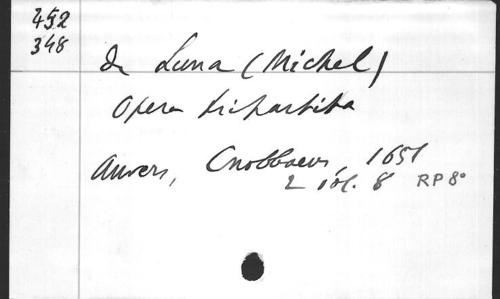 452
348
de Luna (Michel)
Opera tripartita
Anvers, Cnobbaeus, 1651
2 vol. 8 RP 8°